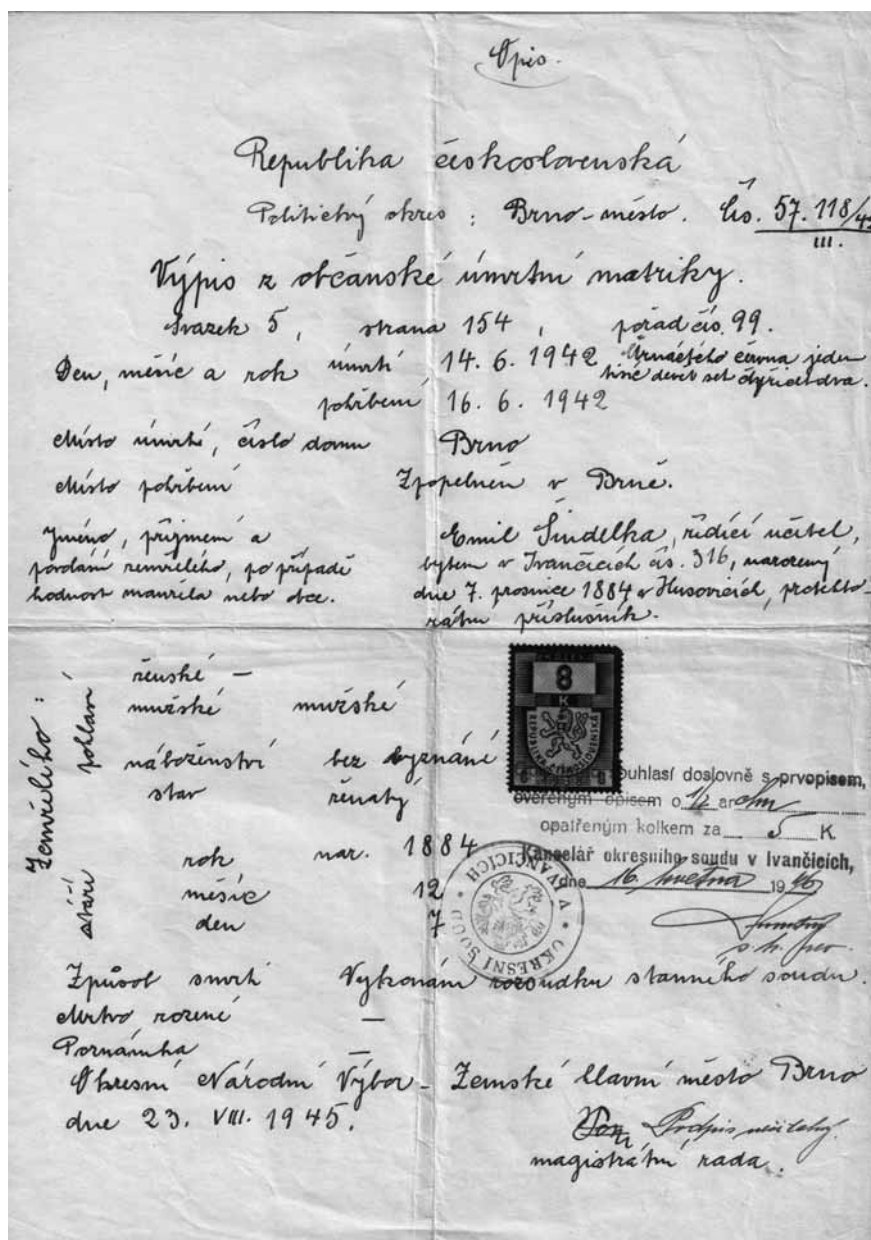 Opis.
Republika československá
Politický okres : Brno-město. Čís. 57.118/45
III.
Výpis z občanské úmrtní matriky.
Svazek 5, strana 154, pořad čís. 99.
Den, měsíc a rok úmrtí 14. 6. 1942 čtrnáctého června jeden
tisíc devět set čtyřicet dva.
pohřbení 16. 6. 1942
Místo úmrtí, číslo domu Brno
Místo pohřbení Zpopelněn v Brně.
Jméno, příjmení a Emil Šindelka, řídící učitel,
povolání zemřelého, po případě bytem v Ivančicích čís. 316, narozený
hodnost manžela nebo otce. dne 7. prosince 1884 v Husovicích, protekto-
rátní příslušník.
Zemřelého:
pohlaví
ženské —
mužské mužské
náboženství bez vyznání
stav ženatý
stáří
rok nar. 1884
měsíc 12
den 7
8
K
REPUBLIKA ČESKOSLOVENSKÁ
8 8
souhlasí doslovně s prvopisem,
ověřeným opisem o 1/2 archu
opatřeným kolkem za 5 K.
Kancelář okresního soudu v Ivančicích,
dne 16. května 1946
OKRESNÍ SOUD V IVANČICÍCH
Způsob smrti Vykonání rozsudku stanného soudu.
Mrtvo rozené —
Poznámka —
Okresní Národní Výbor - Zemské hlavní město Brno
dne 23. VIII. 1945.
Podpis nečitelný.
magistrátní rada.